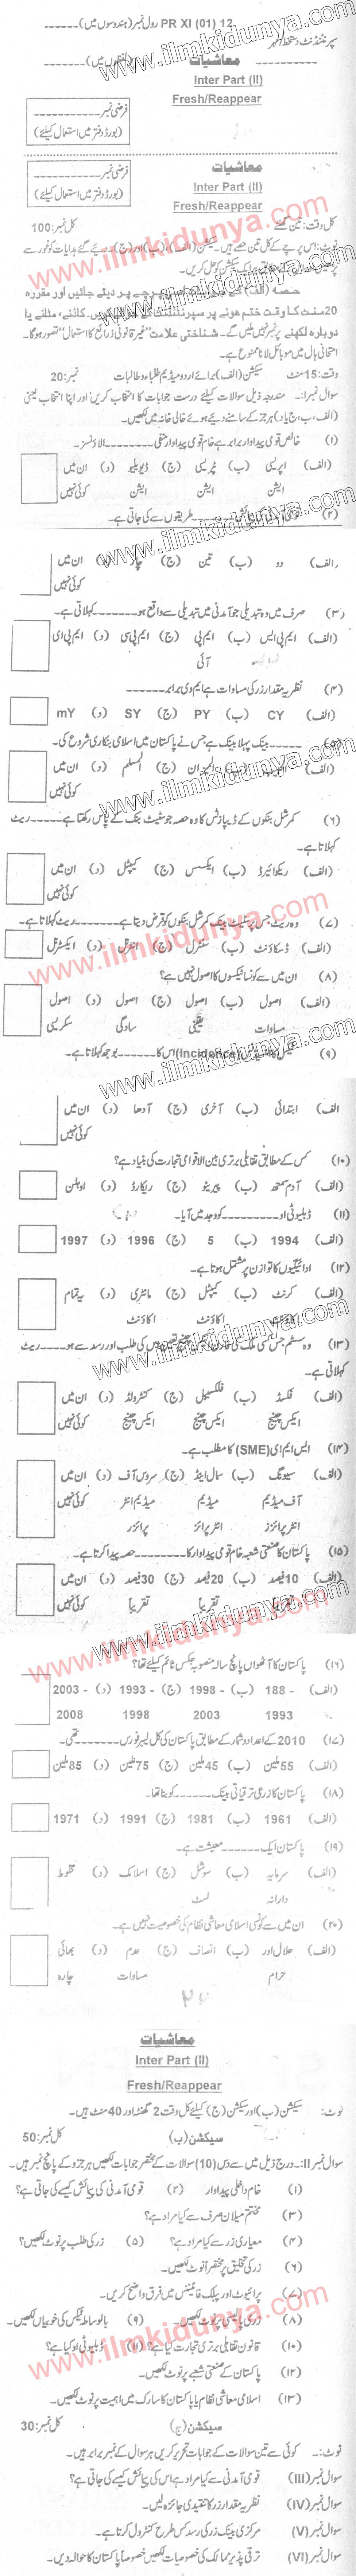 PR XI (01) 12 رول نمبر (ہندسوں میں)
سپرنٹنڈنٹ دستخط و مہر
معاشیات
(لفظوں میں)
Inter Part (II)
Fresh/Reappear
فرضی نمبر
(بورڈ دفتر میں استعمال کیلئے)
معاشیات
Inter Part (II)
Fresh/Reappear
فرضی نمبر
(بورڈ دفتر میں استعمال کیلئے)
کل وقت: تین گھنٹے کل نمبر: 100
نوٹ: اس پرچے کے کل تین حصے ہیں۔ سیکشن (الف)، (ب) اور (ج)۔ دیئے گئے ہدایات کو غور سے
حصہ (الف) کے جوابات پرچے پر دیئے جائیں اور مقررہ
20 منٹ کا وقت ختم ہونے پر سپرنٹنڈنٹ کے کاٹنے، مٹانے یا
دوبارہ لکھنے پر نمبر نہیں ملیں گے۔ شناختی علامت "غیر قانونی ذرائع کا استعمال" تصور ہوگا۔
امتحانی ہال میں موبائل لانا ممنوع ہے۔
وقت: 15 منٹ سیکشن (الف) برائے اردو میڈیم طلباء و طالبات نمبر: 20
سوال نمبر I:۔ مندرجہ ذیل سوالات کیلئے درست جوابات کا انتخاب کریں اور اپنا انتخاب یعنی
(الف، ب، ج یا د) ہر جز کے سامنے دیئے ہوئے خالی خانہ میں لکھیں۔
(۱) خالص قومی پیداوار برابر ہے خام قومی پیداوار منفی ــــــ الاؤنسز۔
(الف) اپریسی ایشن (ب) ڈپریسی ایشن (ج) ڈیویلیو ایشن (د) ان میں کوئی نہیں
(۲) قومی آمدنی کی پیمائش ــــــ طریقوں سے کی جاتی ہے۔
(الف) دو (ب) تین (ج) چار (د) ان میں کوئی نہیں
(۳) صرف میں وہ تبدیلی جو آمدنی میں تبدیلی سے واقع ہو ــــــ کہلاتی ہے۔
(الف) ایم پی ایس (ب) ایم پی آئی (ج) ایم پی سی (د) ایم پی ای
(۴) نظریہ مقدار زر کی مساوات ہے ایم وی برابر ــــــ
(الف) CY (ب) PY (ج) SY (د) mY
(۵) ــــــ بینک پہلا بینک ہے جس نے پاکستان میں اسلامی بنکاری شروع کی۔
(ب) المیزان (ج) المسلم (د) ان میں کوئی نہیں
(۶) کمرشل بنکوں کے ڈیپازٹس کا وہ حصہ جو سٹیٹ بنک کے پاس رکھتا ہے ــــــ ریٹ
کہلاتا ہے۔
(الف) ریکوائیرڈ (ب) ایکسس (ج) کیپٹل (د) ان میں کوئی نہیں
(۷) وہ ریٹ جس پر سٹیٹ بینک کمرشل بنکوں کو قرض دیتا ہے ــــــ ریٹ کہلاتا ہے۔
(الف) ڈسکاؤنٹ (ب) سنٹرل (ج) انٹرنل (د) ایکسٹرنل
(۸) ان میں سے کونسا ٹیکسوں کا اصول نہیں ہے؟
(الف) اصول مساوات (ب) اصول یقینی (ج) اصول سادگی (د) اصول سکریسی
(۹) (Incidence) اس کا ــــــ بوجھ کہلاتا ہے۔
(الف) ابتدائی (ب) آخری (ج) آدھا (د) ان میں کوئی نہیں
(۱۰) کس کے مطابق تقابلی برتری بین الاقوامی تجارت کی بنیاد ہے؟
(الف) آدم سمتھ (ب) پیریٹو (ج) ریکارڈ (د) اوہلن
(۱۱) ڈبلیو ٹی او ــــــ کو وجود میں آیا۔
(الف) 1994 (ب) 5 (ج) 1996 (د) 1997
(۱۲) ادائیگیوں کا توازن پر مشتمل ہوتا ہے۔
(الف) کرنٹ اکاؤنٹ (ب) کیپٹل اکاؤنٹ (ج) مانٹری اکاؤنٹ (د) یہ تمام
(۱۳) وہ سسٹم جس میں کسی ملک کی کی طلب اور رسد سے ہو ــــــ ریٹ
کہلاتی ہے۔
(الف) فکسڈ ایکس چینج (ب) فلکسیبل ایکس چینج (ج) کنٹرولڈ ایکس چینج (د) ان میں کوئی نہیں
(۱۴) ایس ایم ای (SME) کا مطلب ہے۔
(الف) سیونگ آف میڈیم انٹر پرائزز (ب) سمال اینڈ میڈیم انٹر پرائزز (ج) سروس آف میڈیم انٹر پرائزز (د) ان میں کوئی نہیں
(۱۵) پاکستان کا صنعتی شعبہ خام قومی پیداوار کا ــــــ حصہ پیدا کرتا ہے۔
(الف) 10 فیصد تقریباً (ب) 20 فیصد تقریباً (ج) 30 فیصد تقریباً (د) ان میں کوئی نہیں
(۱۶) پاکستان کا آٹھواں پانچ سالہ منصوبہ جس ٹائم کیلئے تھا؟
(الف) 188 - 1993 (ب) 1998 - 2003 (ج) 1993 - 1998 (د) 2003 - 2008
(۱۷) 2010 کے اعداد و شمار کے مطابق پاکستان کی کل لیبر فورس ــــــ تھی۔
(الف) 55 ملین (ب) 45 ملین (ج) 75 ملین (د) 85 ملین
(۱۸) پاکستان کا زرعی ترقیاتی بینک ــــــ کو بنا تھا۔
(الف) 1961 (ب) 1981 (ج) 1991 (د) 1971
(۱۹) پاکستان ایک ــــــ معیشت ہے۔
(الف) سرمایہ دارانہ (ب) سوشلسٹ (ج) اسلامک (د) مخلوط
(۲۰) ان میں سے کونسی اسلامی معاشی نظام کی خصوصیت نہیں ہے۔
(الف) حلال اور حرام (ب) انصاف (ج) عدم مساوات (د) بھائی چارہ
معاشیات
Inter Part (II)
Fresh/Reappear
نوٹ: سیکشن (ب) اور سیکشن (ج) کیلئے کل وقت 2 گھنٹہ اور 40 منٹ ہیں۔
سیکشن (ب) کل نمبر: 50
سوال نمبر II:۔ درج ذیل میں سے دس (10) سوالات کے مختصر جوابات لکھیں ہر جزو کے پانچ نمبر ہیں۔
(۱) خام داخلی پیداوار (۲) قومی آمدنی کی پیمائش کیسے کی جاتی ہے؟
(۳) مختتم میلان صرف سے کیا مراد ہے؟
(۴) معیاری زر سے کیا مراد ہے؟ (۵) زر کی طلب پر نوٹ لکھیں؟
(۶) زر کی تخلیق پر مختصراً نوٹ لکھیں۔
(۷) پرائیوٹ اور پبلک فائینس میں فرق واضح کریں۔
(۸) زری پالیسی پر نوٹ لکھیں۔ (۹) بالواسطہ ٹیکس کی خوبیاں لکھیں۔
(۱۰) قانون تقابلی برتری تجارت کیا ہے؟ (۱۱) ڈبلیو ٹی او کیا ہے؟
(۱۲) پاکستان کے صنعتی شعبے پر نوٹ لکھیں۔
(۱۳) اسلامی معاشی نظام یا پاکستان کا سارک میں اہمیت پر نوٹ لکھیں۔
سیکشن (ج) کل نمبر: 30
نوٹ:۔ کوئی سے تین سوالات کے جوابات تحریر کریں ہر سوال کے نمبر برابر ہیں۔
سوال نمبر (III) قومی آمدنی سے کیا مراد ہے اس کی پیمائش کیسے کی جاتی ہے؟
سوال نمبر (IV) نظریہ مقدار زر کا تنقیدی جائزہ لیں۔
سوال نمبر (V) مرکزی بینک زر کی رسد کس طرح کنٹرول کرتا ہے۔
سوال نمبر (VI) ترقی پذیر ممالک کی خصوصیات لکھیں خصوصاً پاکستان کا حوالہ دیں۔
www.ilmkidunya.com